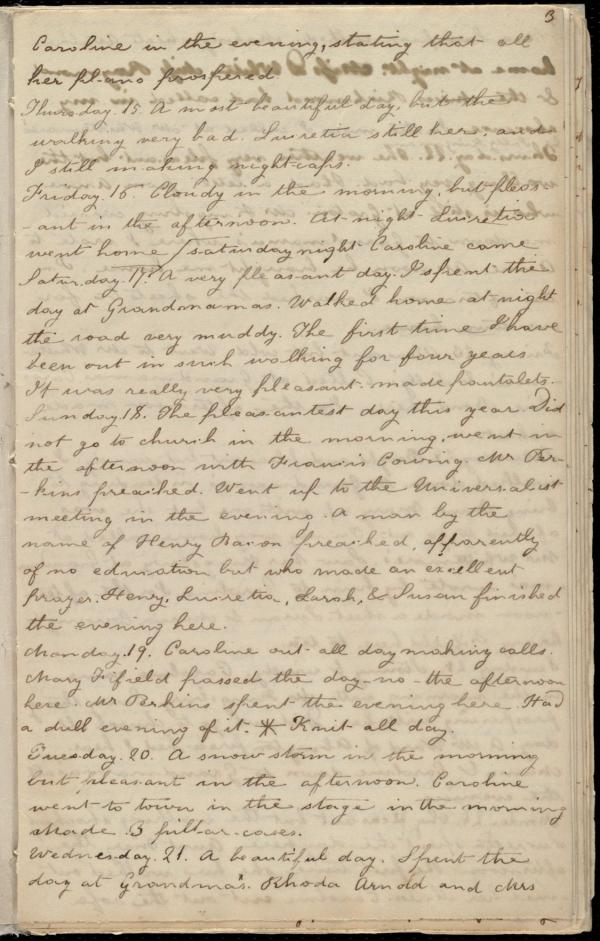 3
Caroline in the evening, stating that all
her plans prospered
Thursday. 15. A most beautiful day, but the
walking very bad. Lucretia still here, and
I still making night-caps.
Friday. 16. Cloudy in the morning, but pleas-
-ant in the afternoon. At night Lucretia
went home / saturday night Caroline came
Saturday. 17. A very pleasant day. I spent the
day at Grandmamas. Walked home at night
the road very muddy. The first time I have
been out in such walking for four years
It was really very pleasant. made pantalets.
Sunday. 18. The pleasantest day this year. Did
not go to church in the morning, went in
the afternoon with Francis Cowing. Mr Per-
-kins preached. Went up to the Universalist
meeting in the evening. A man by the
name of Henry Bacon preached, apparently
of no education but who made an excellent
prayer. Henry, Lucretia, Sarah, & Susan finished
the evening here.
Monday. 19. Caroline out all day making calls.
Mary Fifield passed the day - no - the afternoon
here. Mr Perkins spent the evening here. Had
a dull evening of it. * Knit all day.
Tuesday. 20. A snow storm in the morning
but pleasant in the afternoon. Caroline
went to town in the stage in the morning
Made 3 pillar-cases.
Wednesday. 21. A beautiful day. Spent the
day at Grandma's. Rhoda Arnold and Mrs